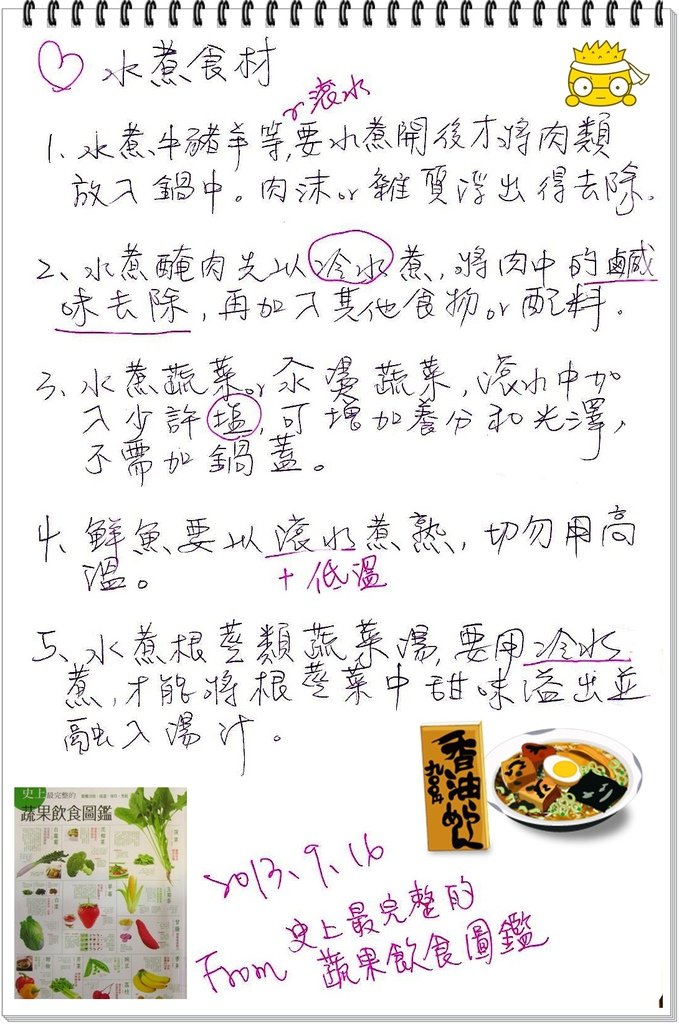 水煮食材
or滾水
1、水煮牛豬羊等,要水煮開後才將肉類
放入鍋中。肉沫or雜質浮出得去除。
2、水煮醃肉先以冷水煮,將肉中的鹹
味去除,再加入其他食物or配料。
3、水煮蔬菜or汆燙蔬菜,滾水中加
入少許塩,可增加養分和光澤,
不需加鍋蓋。
4、鮮魚要以滾水煮熟,切勿用高
溫。
+低溫
5、水煮根莖類蔬菜湯,要用冷水
煮,才能將根莖菜中甜味溢出並
融入湯汁。
香油らーめん
史上最完整的
蔬果飲食圖鑑
2013、9、16
From 史上最完整的
蔬果飲食圖鑑